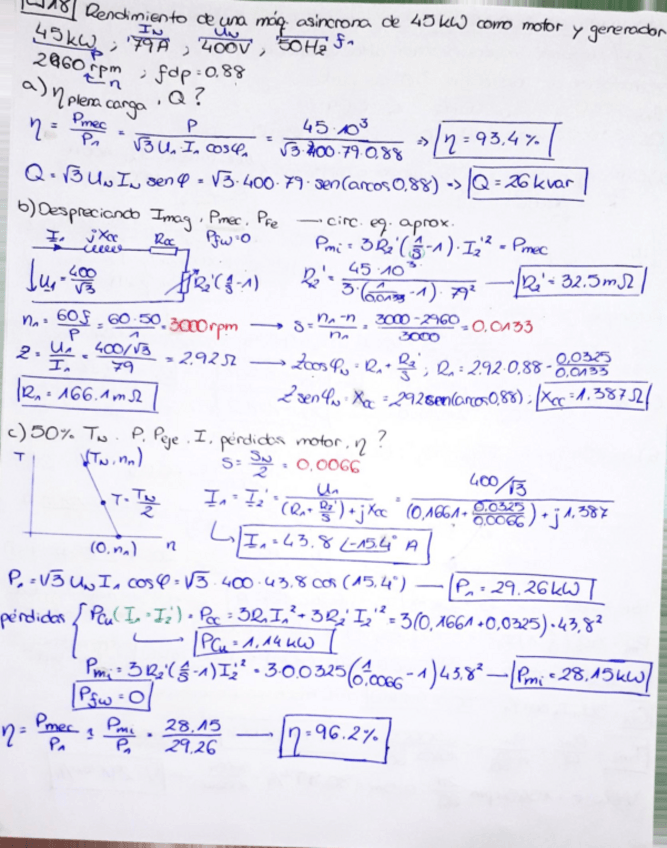 18] Rendimiento de una máq. asíncrona de 45kW como motor y generador
45kW, IN 79A, UN 400V, 50Hz f1
2960 rpm n ; fdp=0.88
a) η plena carga, Q?
η = Pmec/P1 = P/(√3 U1 I1 cosφ1) = 45·10³/(√3·400·79·0,88) => η=93,4%
Q=√3 UN IN senφ = √3·400·79·sen(arcos 0,88) => Q=26kvar
b) Despreciando Imag, Pmec, PFe → circ. eq. aprox.
I1 jXcc Rcc Pfw=0 Pmi=3R2'(1/s-1)·I2'² = Pmec
U1=400/√3 R2'(1/s-1) R2'=45·10³/(3·(1/0,0133-1)·79²) → R2'=32.5mΩ
n1=60f/P=60·50/1=3000rpm → s=(n1-n)/n1=(3000-2960)/3000=0,0133
Z=U1/I1=(400/√3)/79=2.92Ω → ZcosφN=R1+R2'/s; R1=2.92·0.88-0,0325/0,0133
R1=166.1mΩ ZsenφN=Xcc=2.92sen(arcos0,88), Xcc=1.387Ω
c) 50% TN. P, Peje, I, pérdidas motor, η?
T (TN, nn) s=sN/2=0,0066
T=TN/2 I1=I2'=U1/((R1+R2'/s)+jXcc)=(400/√3)/((0,1661+0,0325/0,0066)+j1,387)
(0,n1) n I1=43.8∠-15.4° A
P1=√3 UN I1 cosφ=√3·400·43.8 cos(15.4°) → P1=29,26kW
pérdidas { PCu(I1=I2')=Pcc=3R1I1²+3R2'I2'²=3(0,1661+0,0325)·43,8²
PCu=1,14kW
Pmi=3R2'(1/s-1)I2'²=3·0,0325(1/0,0066-1)43.8² → Pmi=28,15kW
Pfw=0
η=Pmec/P1=Pmi/P1=28,15/29,26 → η=96.2%